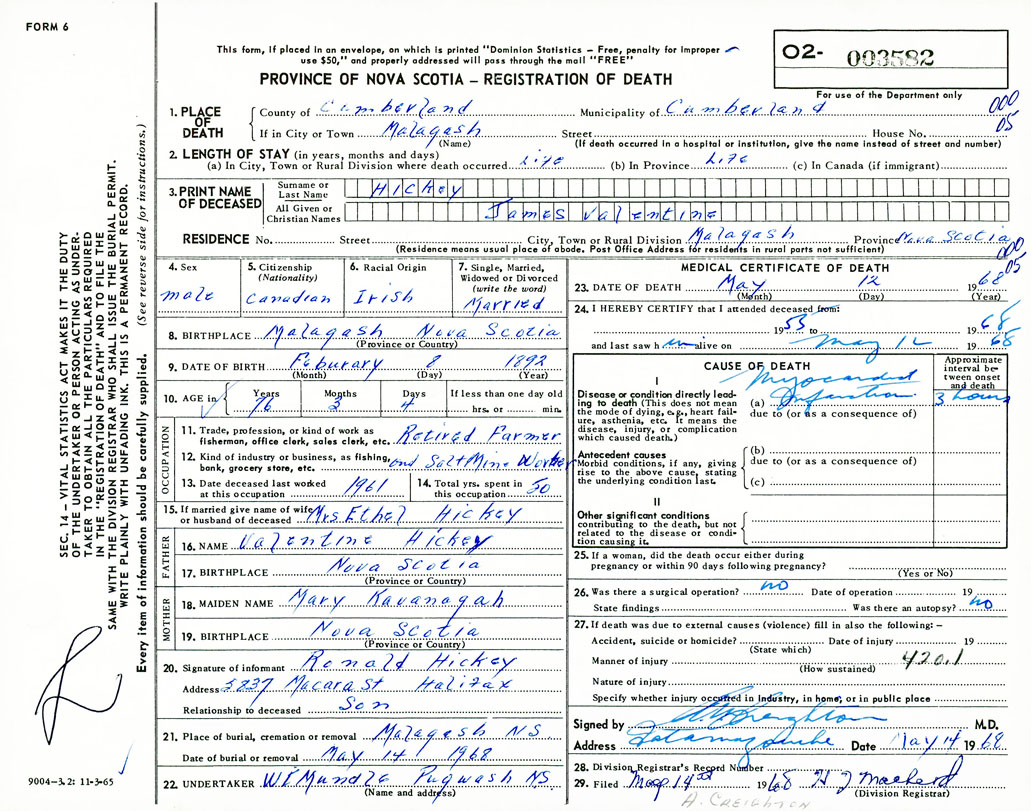 FORM 6
This form, if placed in an envelope, on which is printed "Dominion Statistics – Free, penalty for improper
use $50," and properly addressed will pass through the mail "FREE"
PROVINCE OF NOVA SCOTIA – REGISTRATION OF DEATH
O2- 003582
For use of the Department only
000
05
1. PLACE OF DEATH
County of Cumberland Municipality of Cumberland
If in City or Town Malagash Street House No.
(Name) (If death occurred in a hospital or institution, give the name instead of street and number)
2. LENGTH OF STAY (in years, months and days)
(a) In City, Town or Rural Division where death occurred Life (b) In Province Life (c) In Canada (if immigrant)
3. PRINT NAME OF DECEASED
Surname or Last Name Hickey
All Given or Christian Names James Valentine
RESIDENCE No. Street City, Town or Rural Division Malagash Province Nova Scotia
(Residence means usual place of abode. Post Office Address for residents in rural parts not sufficient)
000
05
4. Sex
male
5. Citizenship
(Nationality)
Canadian
6. Racial Origin
Irish
7. Single, Married,
Widowed or Divorced
(write the word)
Married
8. BIRTHPLACE Malagash Nova Scotia
(Province or Country)
9. DATE OF BIRTH Feburary 8 1892
(Month) (Day) (Year)
10. AGE in Years Months Days If less than one day old
76 3 4 hrs. or min.
OCCUPATION
11. Trade, profession, or kind of work as
fisherman, office clerk, sales clerk, etc. Retired Farmer
12. Kind of industry or business, as fishing,
bank, grocery store, etc. and Salt Mine Worker
13. Date deceased last worked
at this occupation 1961
14. Total yrs. spent in
this occupation 50
15. If married give name of wife
or husband of deceased Mrs Ethel Hickey
FATHER
16. NAME Valentine Hickey
17. BIRTHPLACE Nova Scotia
(Province or Country)
MOTHER
18. MAIDEN NAME Mary Kavanagah
19. BIRTHPLACE Nova Scotia
(Province or Country)
20. Signature of informant Ronald Hickey
Address 5837 Macara St Halifax
Relationship to deceased Son
21. Place of burial, cremation or removal Malagash NS.
Date of burial or removal May 14 1968
22. UNDERTAKER Mundle Pugwash NS
(Name and address)
MEDICAL CERTIFICATE OF DEATH
23. DATE OF DEATH May 12 1968
(Month) (Day) (Year)
24. I HEREBY CERTIFY that I attended deceased from:
1953 to 1968
and last saw him alive on May 12 1968
CAUSE OF DEATH
Approximate
interval be-
tween onset
and death
I
Disease or condition directly lead-
ing to death (This does not mean
the mode of dying, e.g., heart fail-
ure, asthenia, etc. It means the
disease, injury, or complication
which caused death.)
(a) Myocardial Infarction 3 hours
due to (or as a consequence of)
Antecedent causes
Morbid conditions, if any, giving
rise to the above cause, stating
the underlying condition last.
(b)
due to (or as a consequence of)
(c)
II
Other significant conditions
contributing to the death, but not
related to the disease or condi-
tion causing it.
25. If a woman, did the death occur either during
pregnancy or within 90 days following pregnancy?
(Yes or No)
26. Was there a surgical operation? no Date of operation 19
State findings Was there an autopsy? no
27. If death was due to external causes (violence) fill in also the following: –
Accident, suicide or homicide? Date of injury 19
(State which)
Manner of injury 420.1
(How sustained)
Nature of injury
Specify whether injury occurred in Industry, in home, or in public place
Signed by Creighton M.D.
Address Tatamagouche Date May 14 1968
28. Division Registrar's Record Number
29. Filed May 14th 1968
(Division Registrar)
A. CREIGHTON
SEC. 14 – VITAL STATISTICS ACT MAKES IT THE DUTY
OF THE UNDERTAKER OR PERSON ACTING AS UNDER-
TAKER TO OBTAIN ALL THE PARTICULARS REQUIRED
IN THE "REGISTRATION OF DEATH" AND TO FILE THE
SAME WITH THE DIVISION REGISTRAR WHO SHALL ISSUE THE BURIAL PERMIT.
WRITE PLAINLY WITH UNFADING INK. THIS IS A PERMANENT RECORD.
Every item of information should be carefully supplied. (See reverse side for instructions.)
9004-3.2: 11-3-65